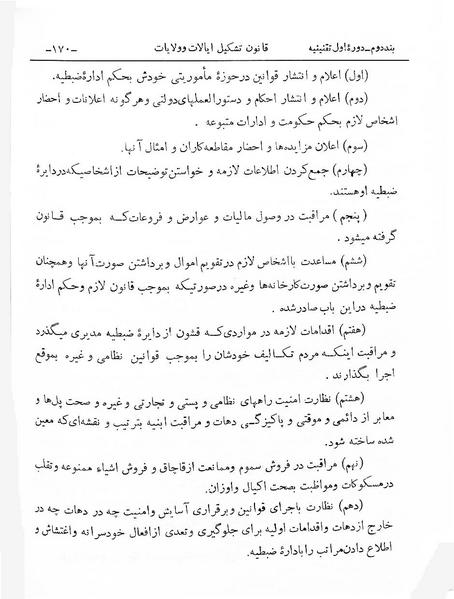 بنددوم_دورهٔ اول تقنینیه قانون تشکیل ایالات وولایات -۱۷۰-
(اول) اعلام و انتشار قوانین درحوزهٔ مأموریتی خودش بحکم ادارهٔ ضبطیه.
(دوم) اعلام و انتشار احکام و دستورالعملهای دولتی وهرگونه اعلانات و احضار
اشخاص لازم بحکم حکومت و ادارات متبوعه .
(سوم) اعلان مزایدهها و احضار مقاطعهکاران و امثال آنها.
(چهارم) جمعکردن اطلاعات لازمه و خواستن توضیحات ازاشخاصیکه دردایرهٔ
ضبطیه اوهستند.
(پنجم) مراقبت در وصول مالیات و عوارض و فروعات که بموجب قانون
گرفته میشود .
(ششم) مساعدت بااشخاص لازم درتقویم اموال وبرداشتن صورت آنها وهمچنان
تقویم وبرداشتن صورت کارخانهها وغیره درصورتیکه بموجب قانون لازم وحکم ادارهٔ
ضبطیه دراین باب صادرشده .
(هفتم) اقدامات لازمه در مواردی که قشون از دایرهٔ ضبطیه مدیری میگذرد
و مراقبت اینکه مردم تکالیف خودشان را بموجب قوانین نظامی و غیره بموقع
اجرا بگذارند .
(هشتم) نظارت امنیت راههای نظامی و پستی و تجارتی وغیره و صحت پلها و
معابر از دائمی و موقتی و پاکیزگی دهات و مراقبت ابنیه بترتیب و نقشهای که معین
شده ساخته شود.
(نهم) مراقبت در فروش سموم وممانعت ازقاچاق و فروش اشیاء ممنوعه وتقلب
درمسکوکات ومواظبت بصحت اکیال واوزان.
(دهم) نظارت باجرای قوانین وبرقراری آسایش وامنیت چه در دهات چه در
خارج ازدهات واقدامات اولیه برای جلوگیری وتعدی ازافعال خودسرانه واغتشاش و
اطلاع دادن مراتب را بادارهٔ ضبطیه.